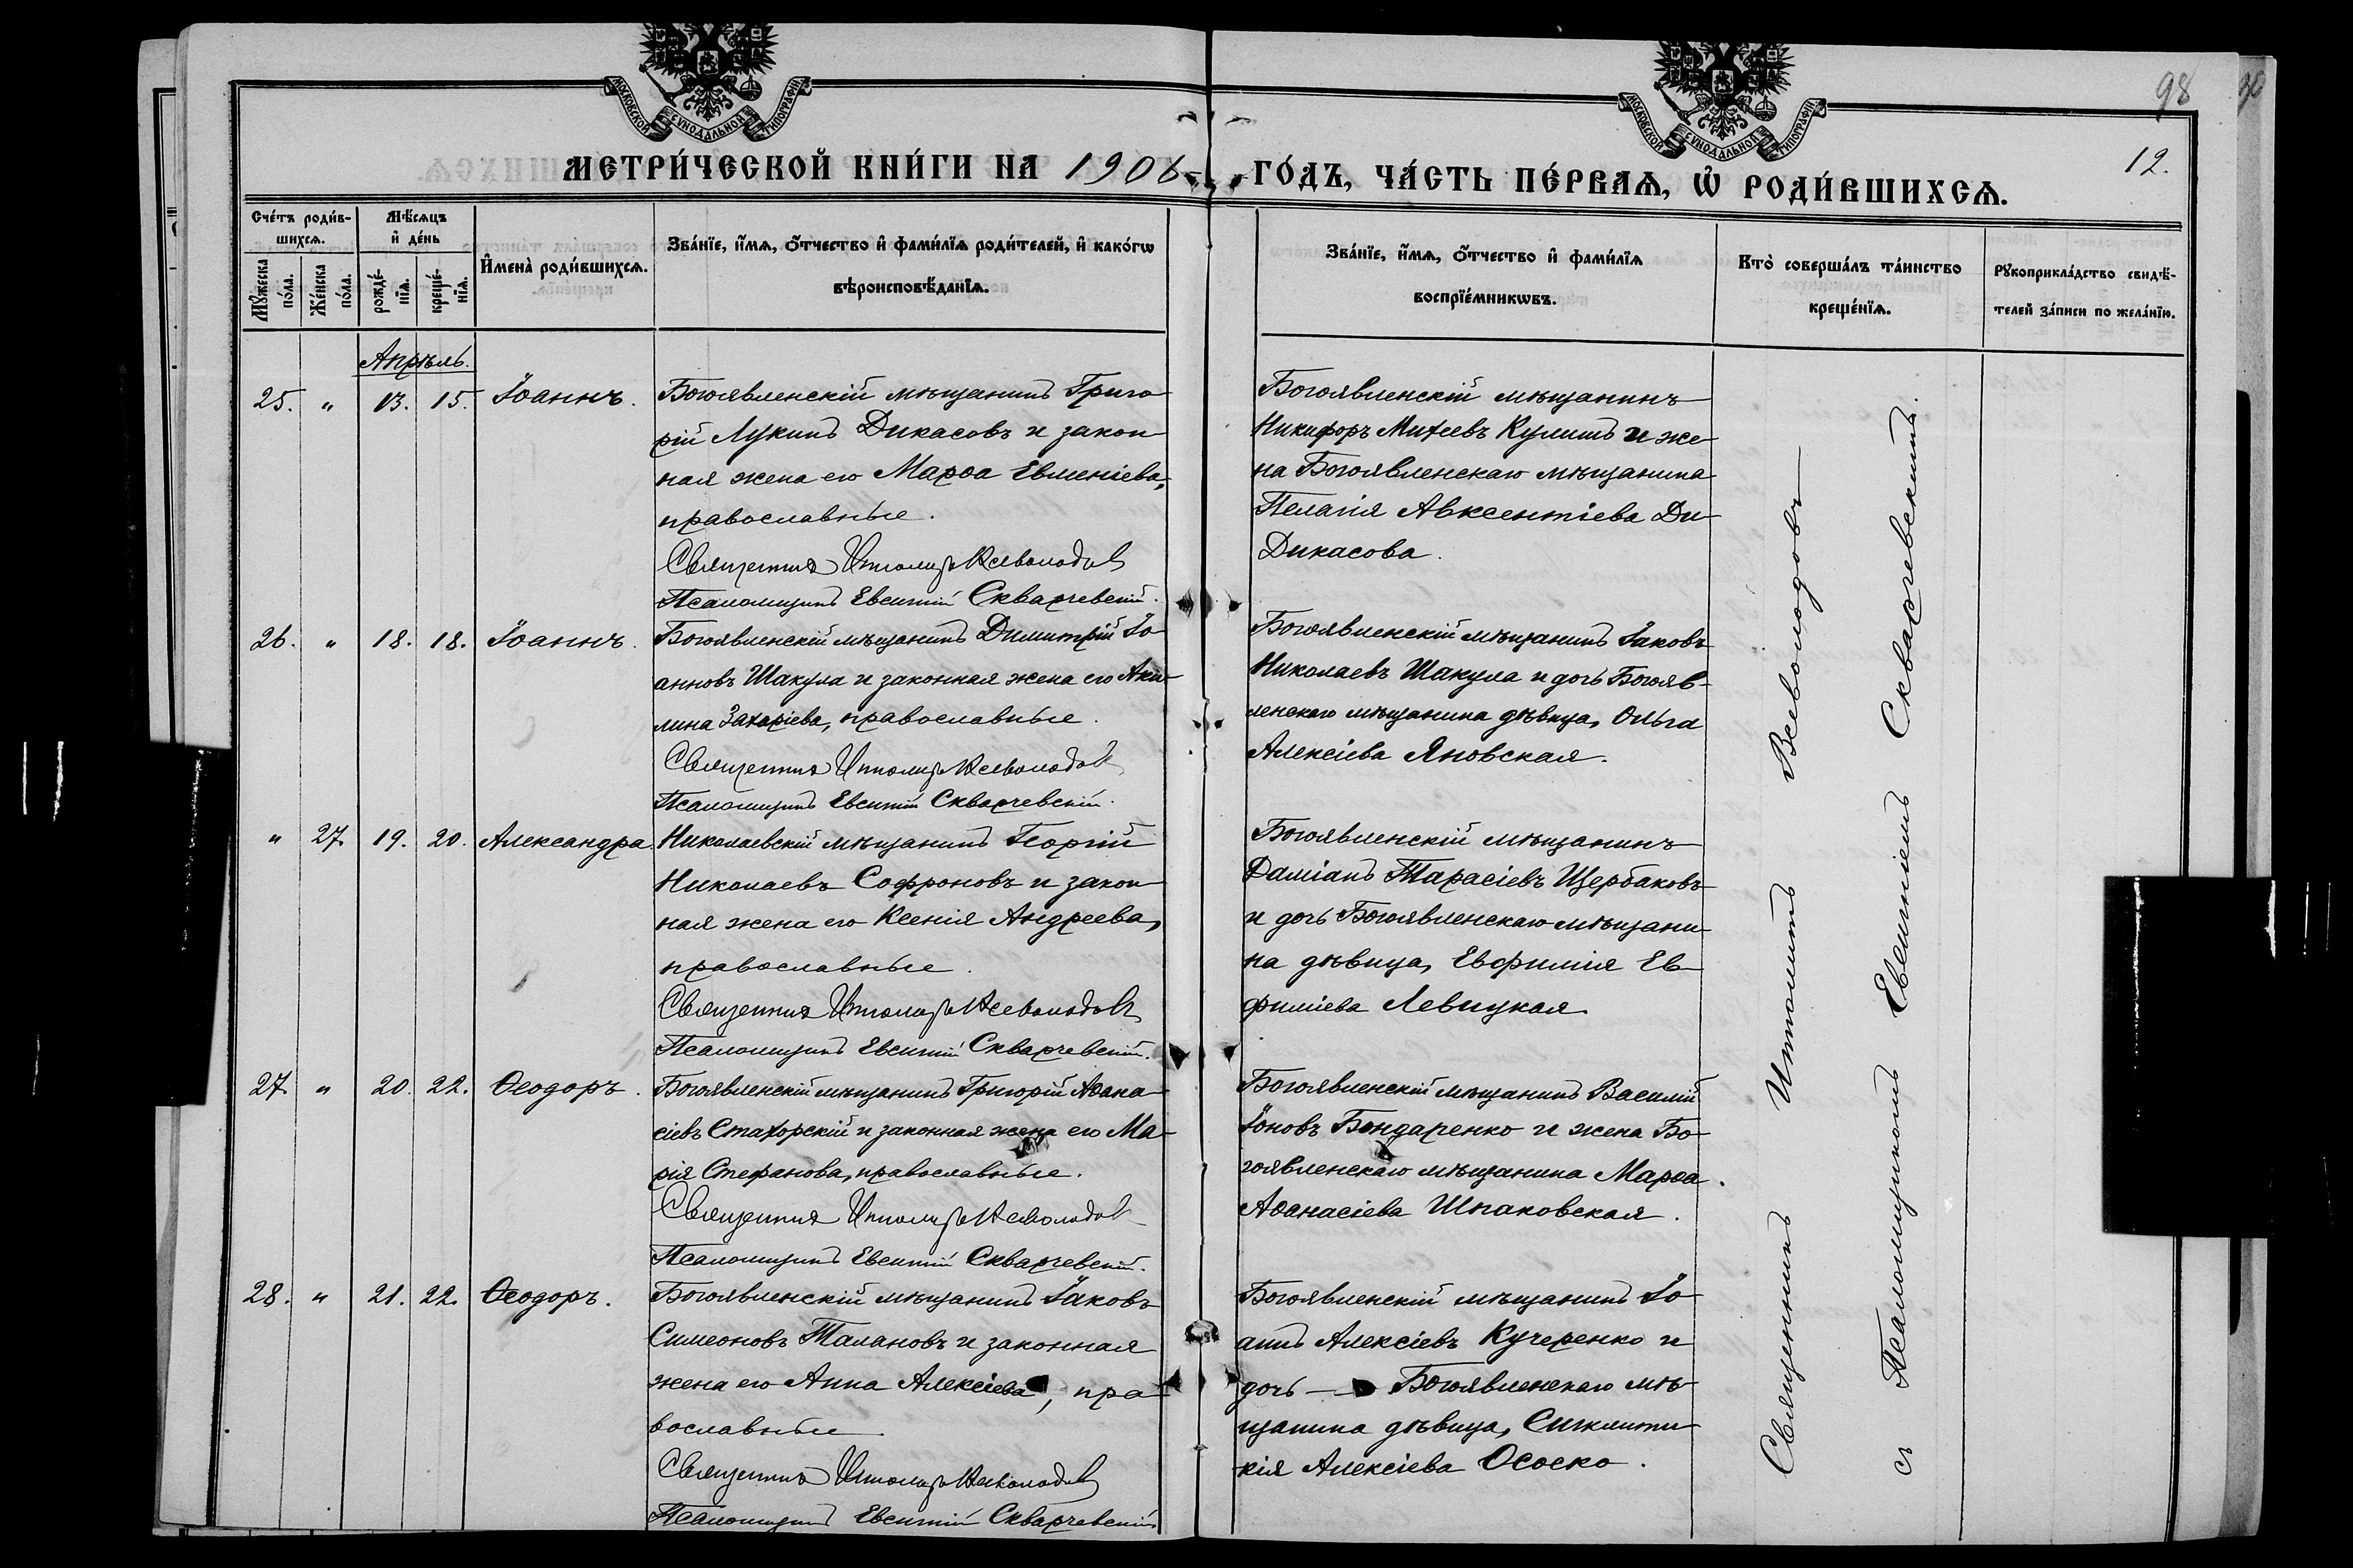 МОСКОВСКОЙ СУНОДАЛЬНОЙ ТИПОГРАФІИ
МОСКОВСКОЙ СУНОДАЛЬНОЙ ТИПОГРАФІИ
98
12.
МЕТРИ́ЧЕСКОЙ КНИ́ГИ НА 1906
ГО́ДЪ, ЧА́СТЬ ПЕ́РВАѦ, Ѡ҆ РОДИ́ВШИХСѦ.
Сче́тъ роди́в-
шихсѧ.
Мꙋ́жеска по́ла.
Же́нска по́ла.
Мѣ́сѧцъ
и҆ де́нь
рожде́-
нїѧ.
креще́-
нїѧ.
И҆мена̀ роди́вшихсѧ.
Зва́нїе, и҆́мѧ, ѻ҆́тчество и҆ фами́лїѧ роди́телей, и҆ како́гѡ
вѣроисповѣ́данїѧ.
Зва́нїе, и҆́мѧ, ѻ҆́тчество и҆ фами́лїѧ
воспрїе́мникѡвъ.
Кто̀ соверша́лъ та́инство
креще́нїѧ.
Рꙋкоприкла́дство свидѣ́-
телей за́писи по жела́нїю.
Апрѣль.
25. " 13. 15. Іоаннъ.
Богоявленскій мѣщанинъ Григо-
рій Лукинъ Дикасовъ и закон-
ная жена его Марѳа Евменіева,
православные.
Священникъ Ипполитъ Всеволодовъ
Псаломщикъ Евгеній Скварчевскій.
Богоявленскій мѣщанинъ
Никифоръ Михеевъ Кулишъ и же-
на Богоявленскаго мѣщанина
Пелагія Авксентіева Ди-
Дикасова.
26. " 18. 18. Іоаннъ.
Богоявленскій мѣщанинъ Димитрій Іо-
анновъ Шакула и законная жена его Аки-
лина Захаріева, православные.
Священникъ Ипполитъ Всеволодовъ
Псаломщикъ Евгеній Скварчевскій.
Богоявленскій мѣщанинъ Іаковъ
Николаевъ Шакула и дочь Богояв-
ленскаго мѣщанина дѣвица, Ольга
Алексіева Яновская.
" 27. 19. 20. Александра
Николаевскій мѣщанинъ Георгій
Николаевъ Софроновъ и закон-
ная жена его Ксенія Андреева,
православные.
Священникъ Ипполитъ Всеволодовъ
Псаломщикъ Евгеній Скварчевскій.
Богоявленскій мѣщанинъ
Даміанъ Тарасіевъ Щербаковъ
и дочь Богоявленскаго мѣщани-
на дѣвица, Евфимія Ев-
фиміева Левицкая.
27. " 20. 22. Ѳеодоръ.
Богоявленскій мѣщанинъ Григорій Аѳана-
сіевъ Стахорскій и законная жена его Ма-
рія Стефанова, православные.
Священникъ Ипполитъ Всеволодовъ
Псаломщикъ Евгеній Скварчевскій.
Богоявленскій мѣщанинъ Василій
Іоновъ Бондаренко и жена Бо-
гоявленскаго мѣщанина Марѳа
Аѳанасіева Шпаковская.
28. " 21. 22. Ѳеодоръ.
Богоявленскій мѣщанинъ Іаковъ
Симеоновъ Талановъ и законная
жена его Анна Алексіева, пра-
вославные.
Священникъ Ипполитъ Всеволодовъ
Псаломщикъ Евгеній Скварчевскій
Богоявленскій мѣщанинъ Іо-
аннъ Алексіевъ Кучеренко и
дочь — Богоявленскаго мѣ-
щанина дѣвица, Синклити-
кія Алексіева Ососко.
Священникъ Ипполитъ Всеволодовъ
съ Псаломщикомъ Евгеніемъ Скварчевскимъ.